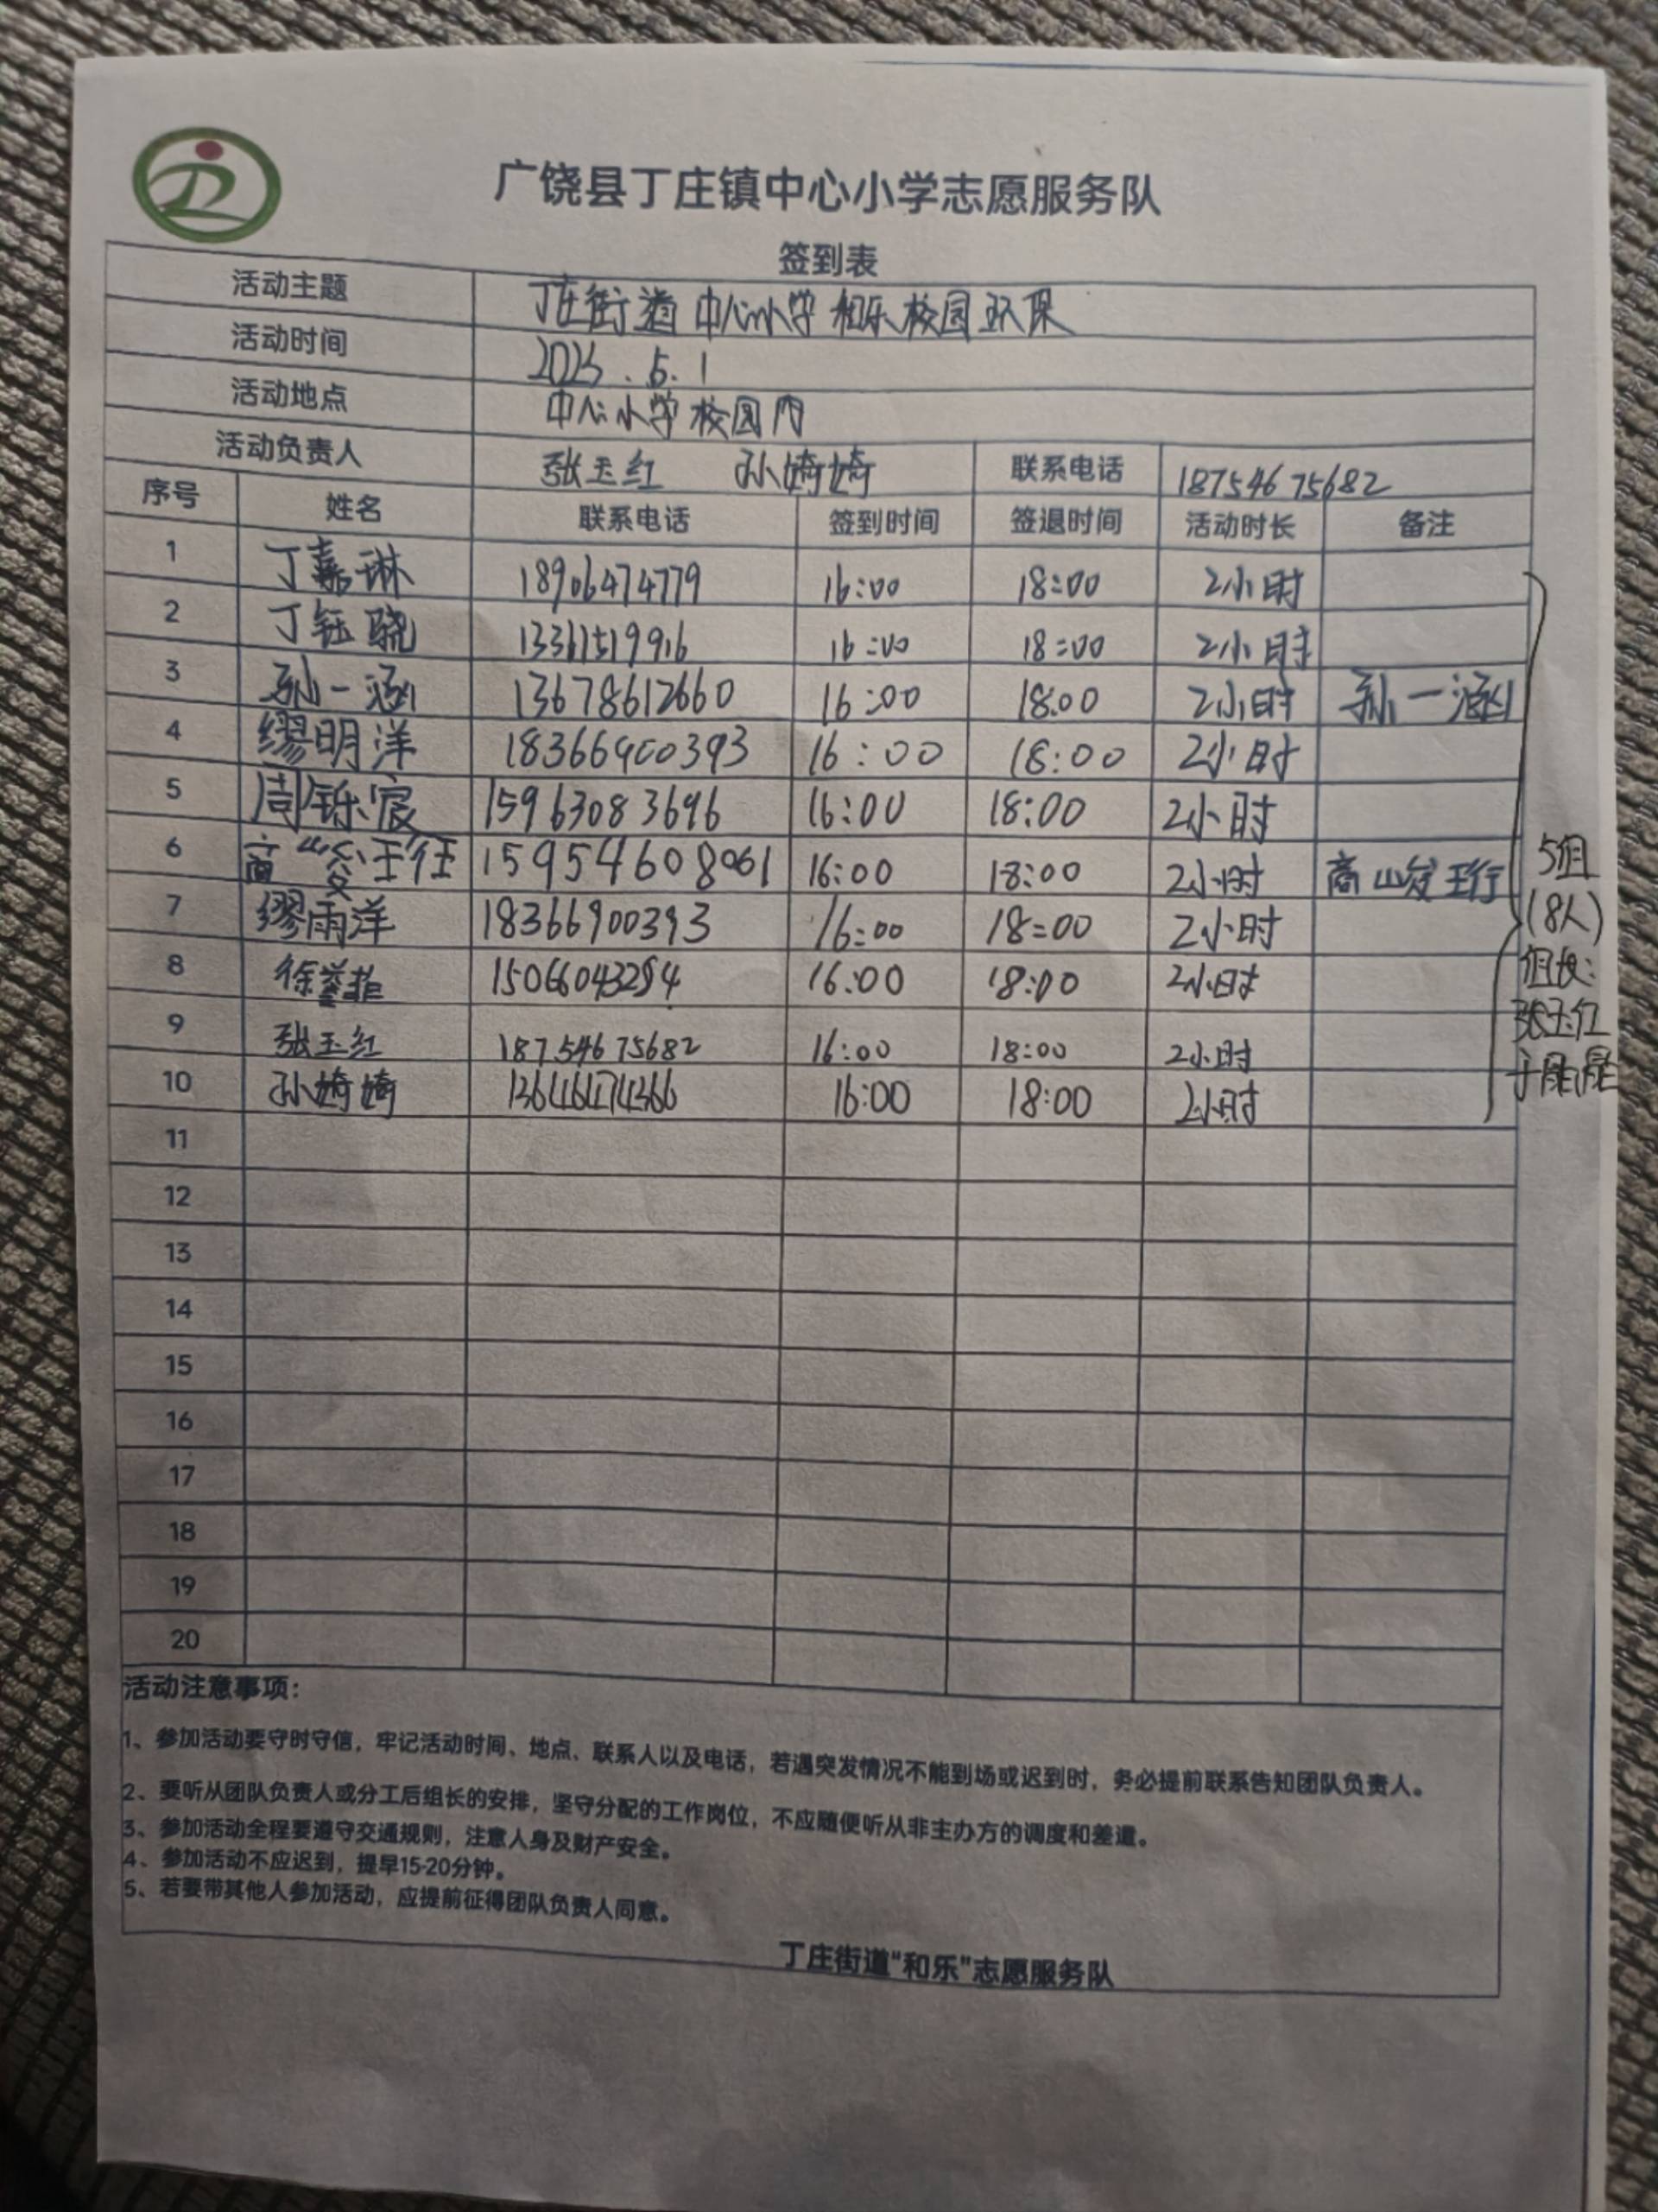 广饶县丁庄镇中心小学志愿服务队
签到表
活动主题 丁庄街道中心小学和乐校园环保
活动时间 2025.5.1
活动地点 中心小学校园内
活动负责人 张玉红 孙婍婍 联系电话 18754675682
序号 姓名 联系电话 签到时间 签退时间 活动时长 备注
1 丁嘉琳 18906474779 16:00 18:00 2小时
2 丁钰骁 13361519916 16:00 18:00 2小时
3 孙一涵 13678612660 16:00 18:00 2小时 孙一涵
4 缪明洋 18366900393 16:00 18:00 2小时
5 周铄宸 15963083696 16:00 18:00 2小时
6 商 15954608061 16:00 18:00 2小时 商
7 缪雨洋 18366900393 16:00 18:00 2小时
8 徐誉菲 15066043294 16:00 18:00 2小时
9 张玉红 18754675682 16:00 18:00 2小时
10 孙婍婍 13646474366 16:00 18:00 2小时
5组
(8人)
组长:
张玉红
11
12
13
14
15
16
17
18
19
20
活动注意事项：
1、参加活动要守时守信，牢记活动时间、地点、联系人以及电话，若遇突发情况不能到场或迟到时，务必提前联系告知团队负责人。
2、要听从团队负责人或分工后组长的安排，坚守分配的工作岗位，不应随便听从非主办方的调度和差遣。
3、参加活动全程要遵守交通规则，注意人身及财产安全。
4、参加活动不应迟到，提早15-20分钟。
5、若要带其他人参加活动，应提前征得团队负责人同意。
丁庄街道“和乐”志愿服务队